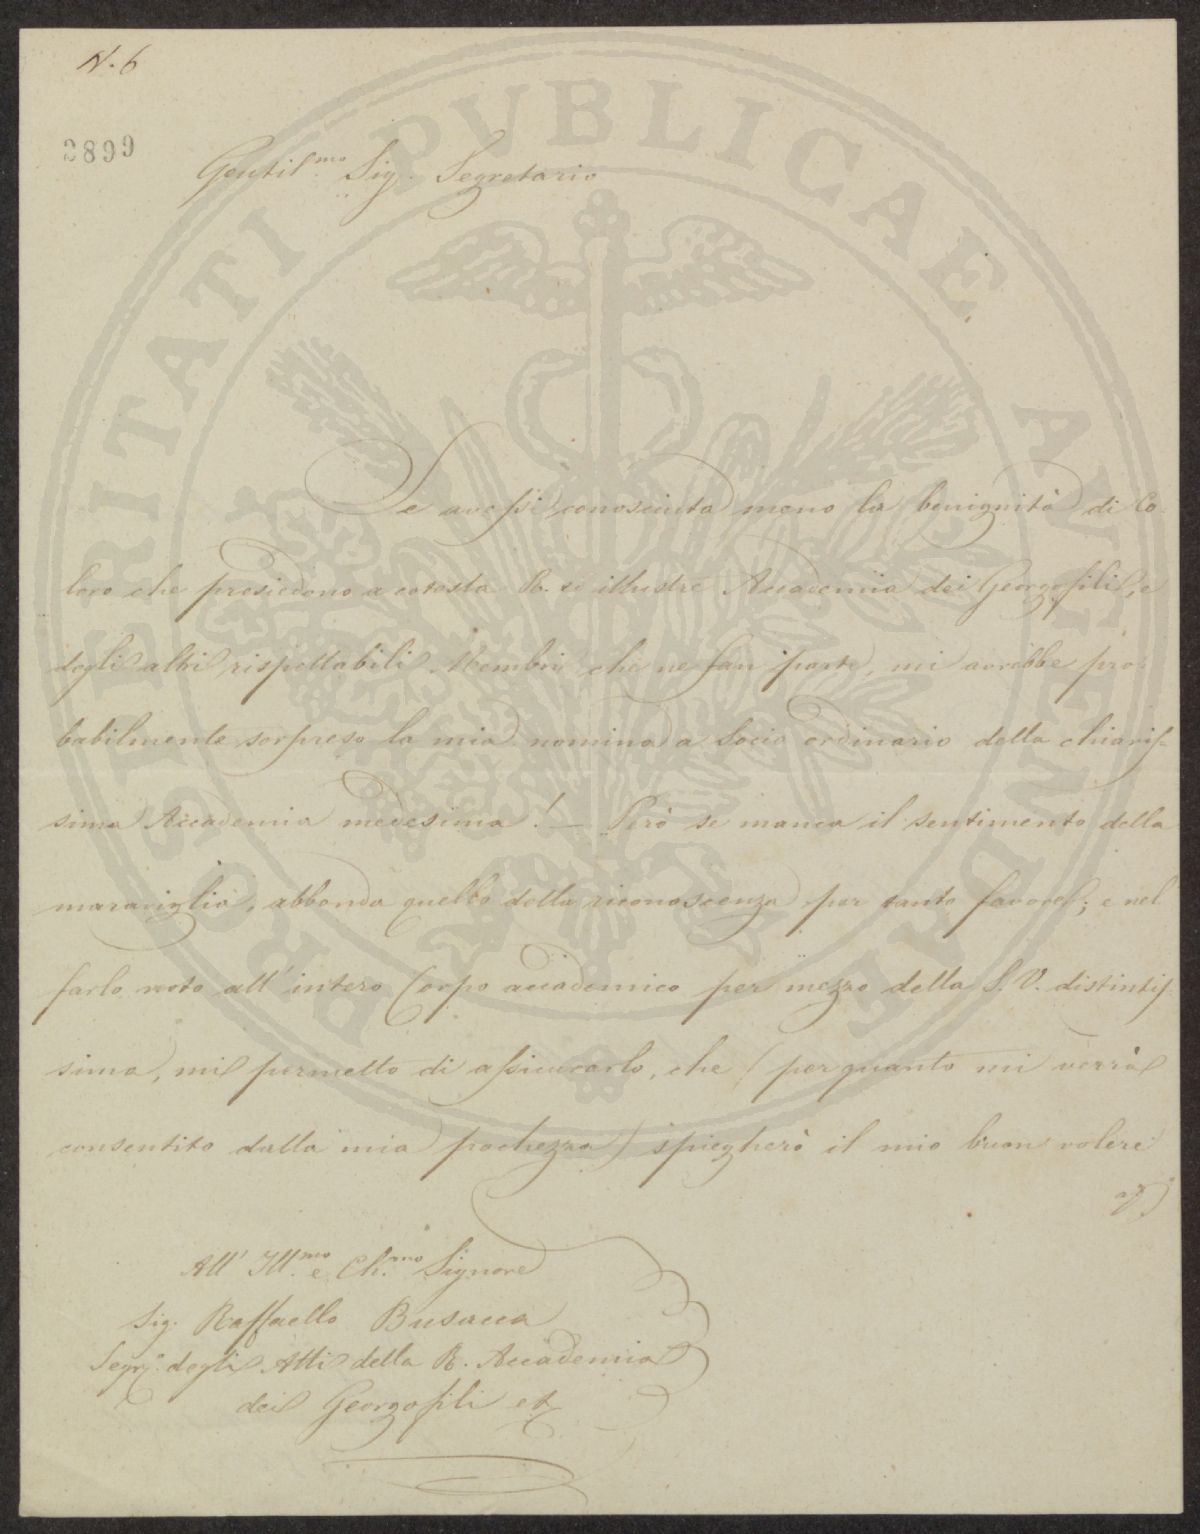 N. 6
2899
Gentil.mo Sig. Segretario
Se avessi conosciuta meno la benignità di Co-
loro che presiedono a cotesta R. sì illustre Accademia dei Georgofili, e
degli altri rispettabili Membri che ne fan parte, mi avrebbe pro-
babilmente sorpreso la mia nomina a Socio ordinario della chiaris-
sima Accademia medesima! — Però se manca il sentimento della
maraviglia, abbonda quello della riconoscenza per tanto favore; e nel
farlo noto all'intero Corpo accademico per mezzo della S. V. distintis-
sima, mi permetto di assicurarlo, che (per quanto mi verrà
consentito dalla mia pochezza) spiegherò il mio buon volere
All' Ill.mo e Ch.mo Signore
Sig. Raffaello Busacca
Segr. degli Atti della R. Accademia
dei Georgofili
PROSPERITATI PVBLICAE AVGENDAE